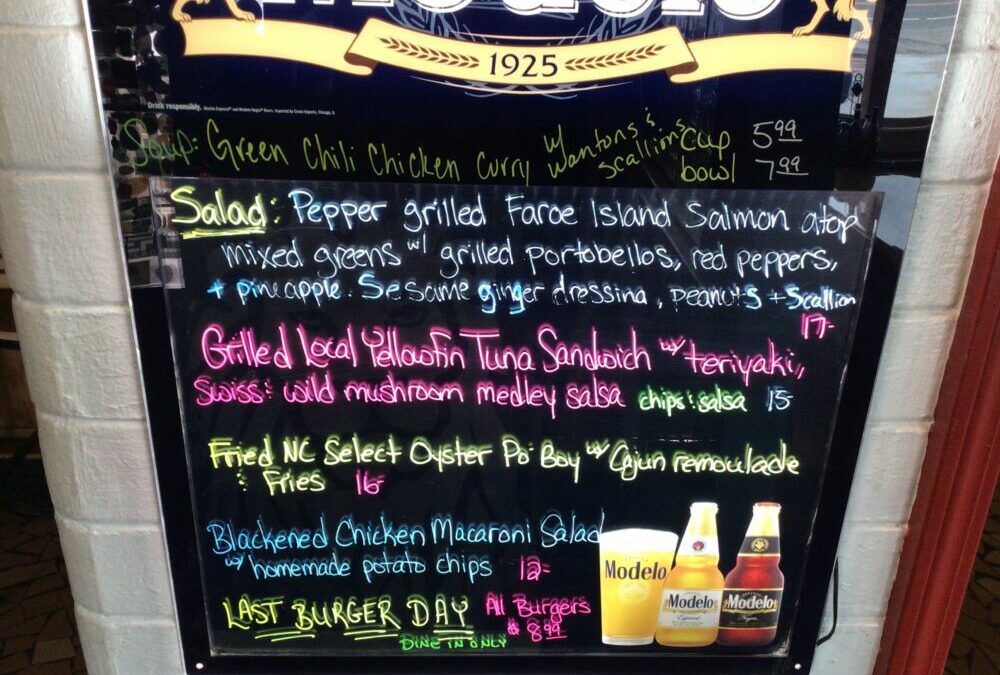 Modelo
1925
Drink responsibly.
Soup: Green Chili Chicken Curry w/ wantons & scallions Cup 5.99
bowl 7.99
Salad: Pepper grilled Faroe Island Salmon atop
mixed greens w/ grilled portobellos, red peppers,
+ pineapple. Sesame ginger dressing, peanuts + Scallion
17-
Grilled Local Yellowfin Tuna Sandwich w/ teriyaki,
Swiss & wild mushroom medley salsa chips & salsa 15-
Fried NC Select Oyster Po' Boy w/ Cajun remoulade
& Fries 16-
Blackened Chicken Macaroni Salad
w/ homemade potato chips 12-
LAST BURGER DAY All Burgers
$ 8.99
DINE IN ONLY
Modelo
Modelo
Especial
Modelo
Negra